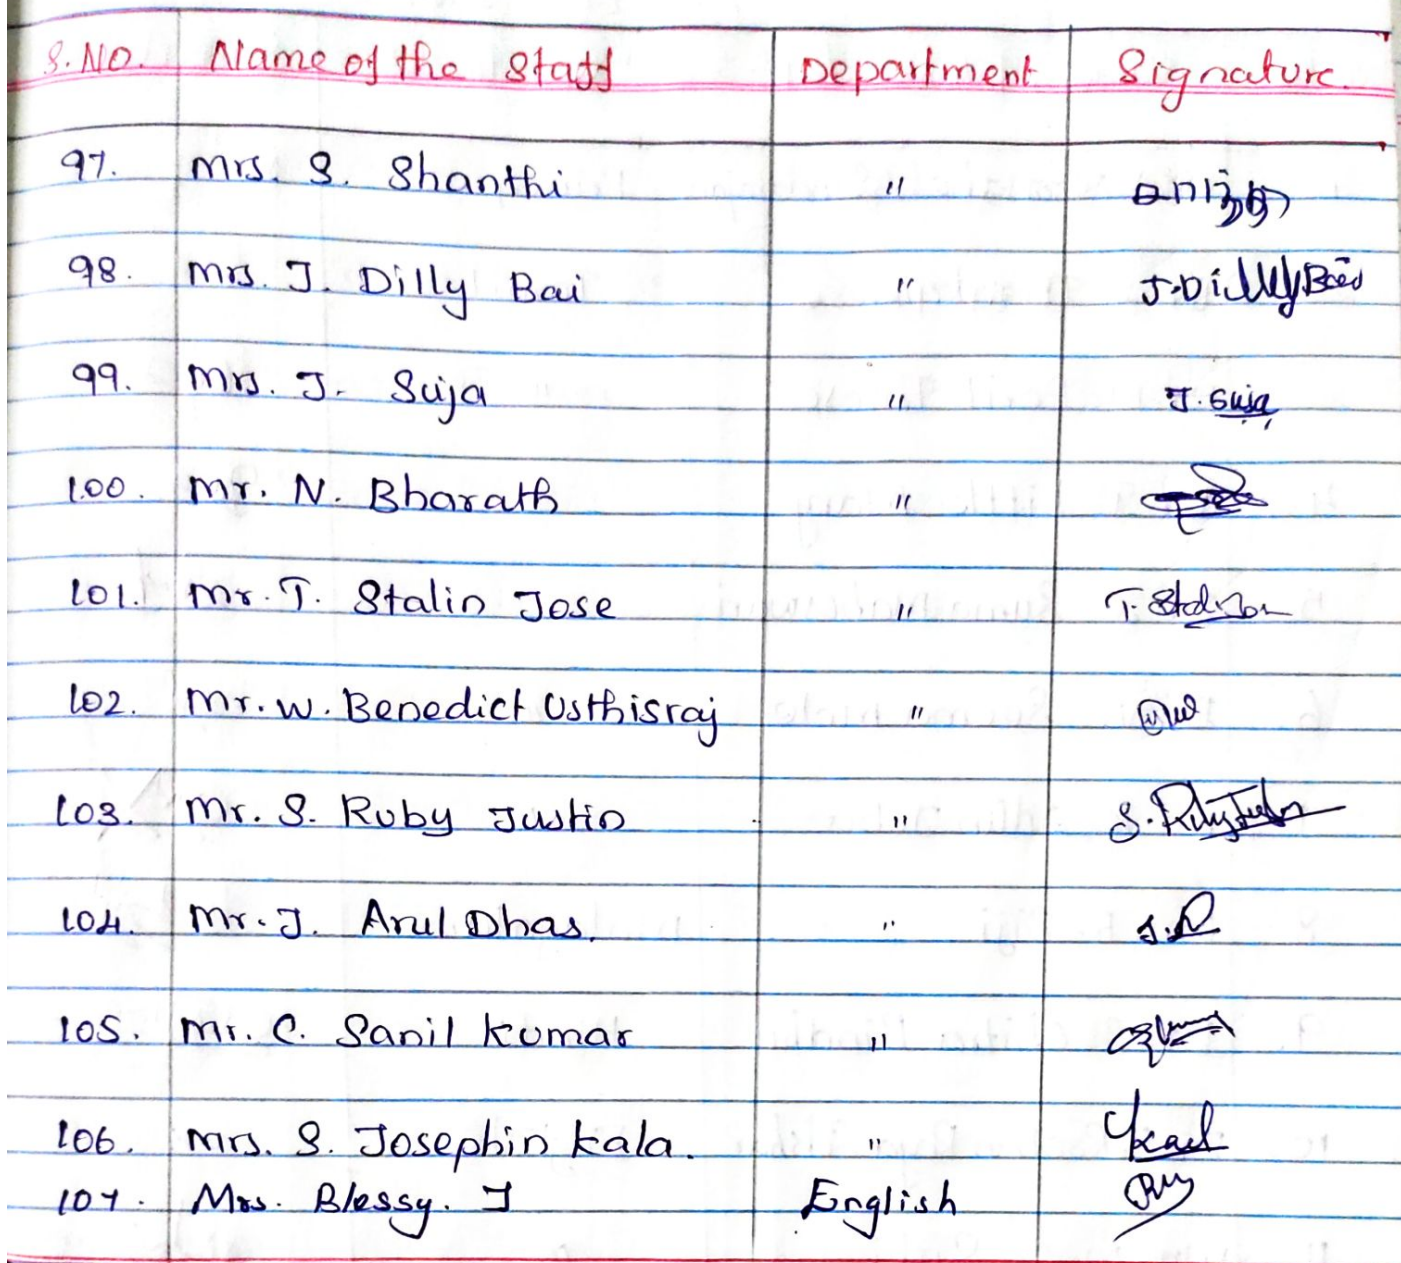 S.NO. Name of the Staff Department Signature.
97. Mrs. S. Shanthi " சாந்தி
98. Mrs. J. Dilly Bai " J.Dilly Bai
99. Mrs. J. Suja " J. Suja
100. Mr. N. Bharath "
101. Mr. T. Stalin Jose " T. Stalin
102. Mr. W. Benedict Usthisraj "
103. Mr. S. Ruby Justin " S. Ruby Justin
104. Mr. J. Arul Dhas. "
105. Mr. C. Sanil Kumar "
106. Mrs. S. Josephin Kala. "
107. Mrs. Blessy. J English